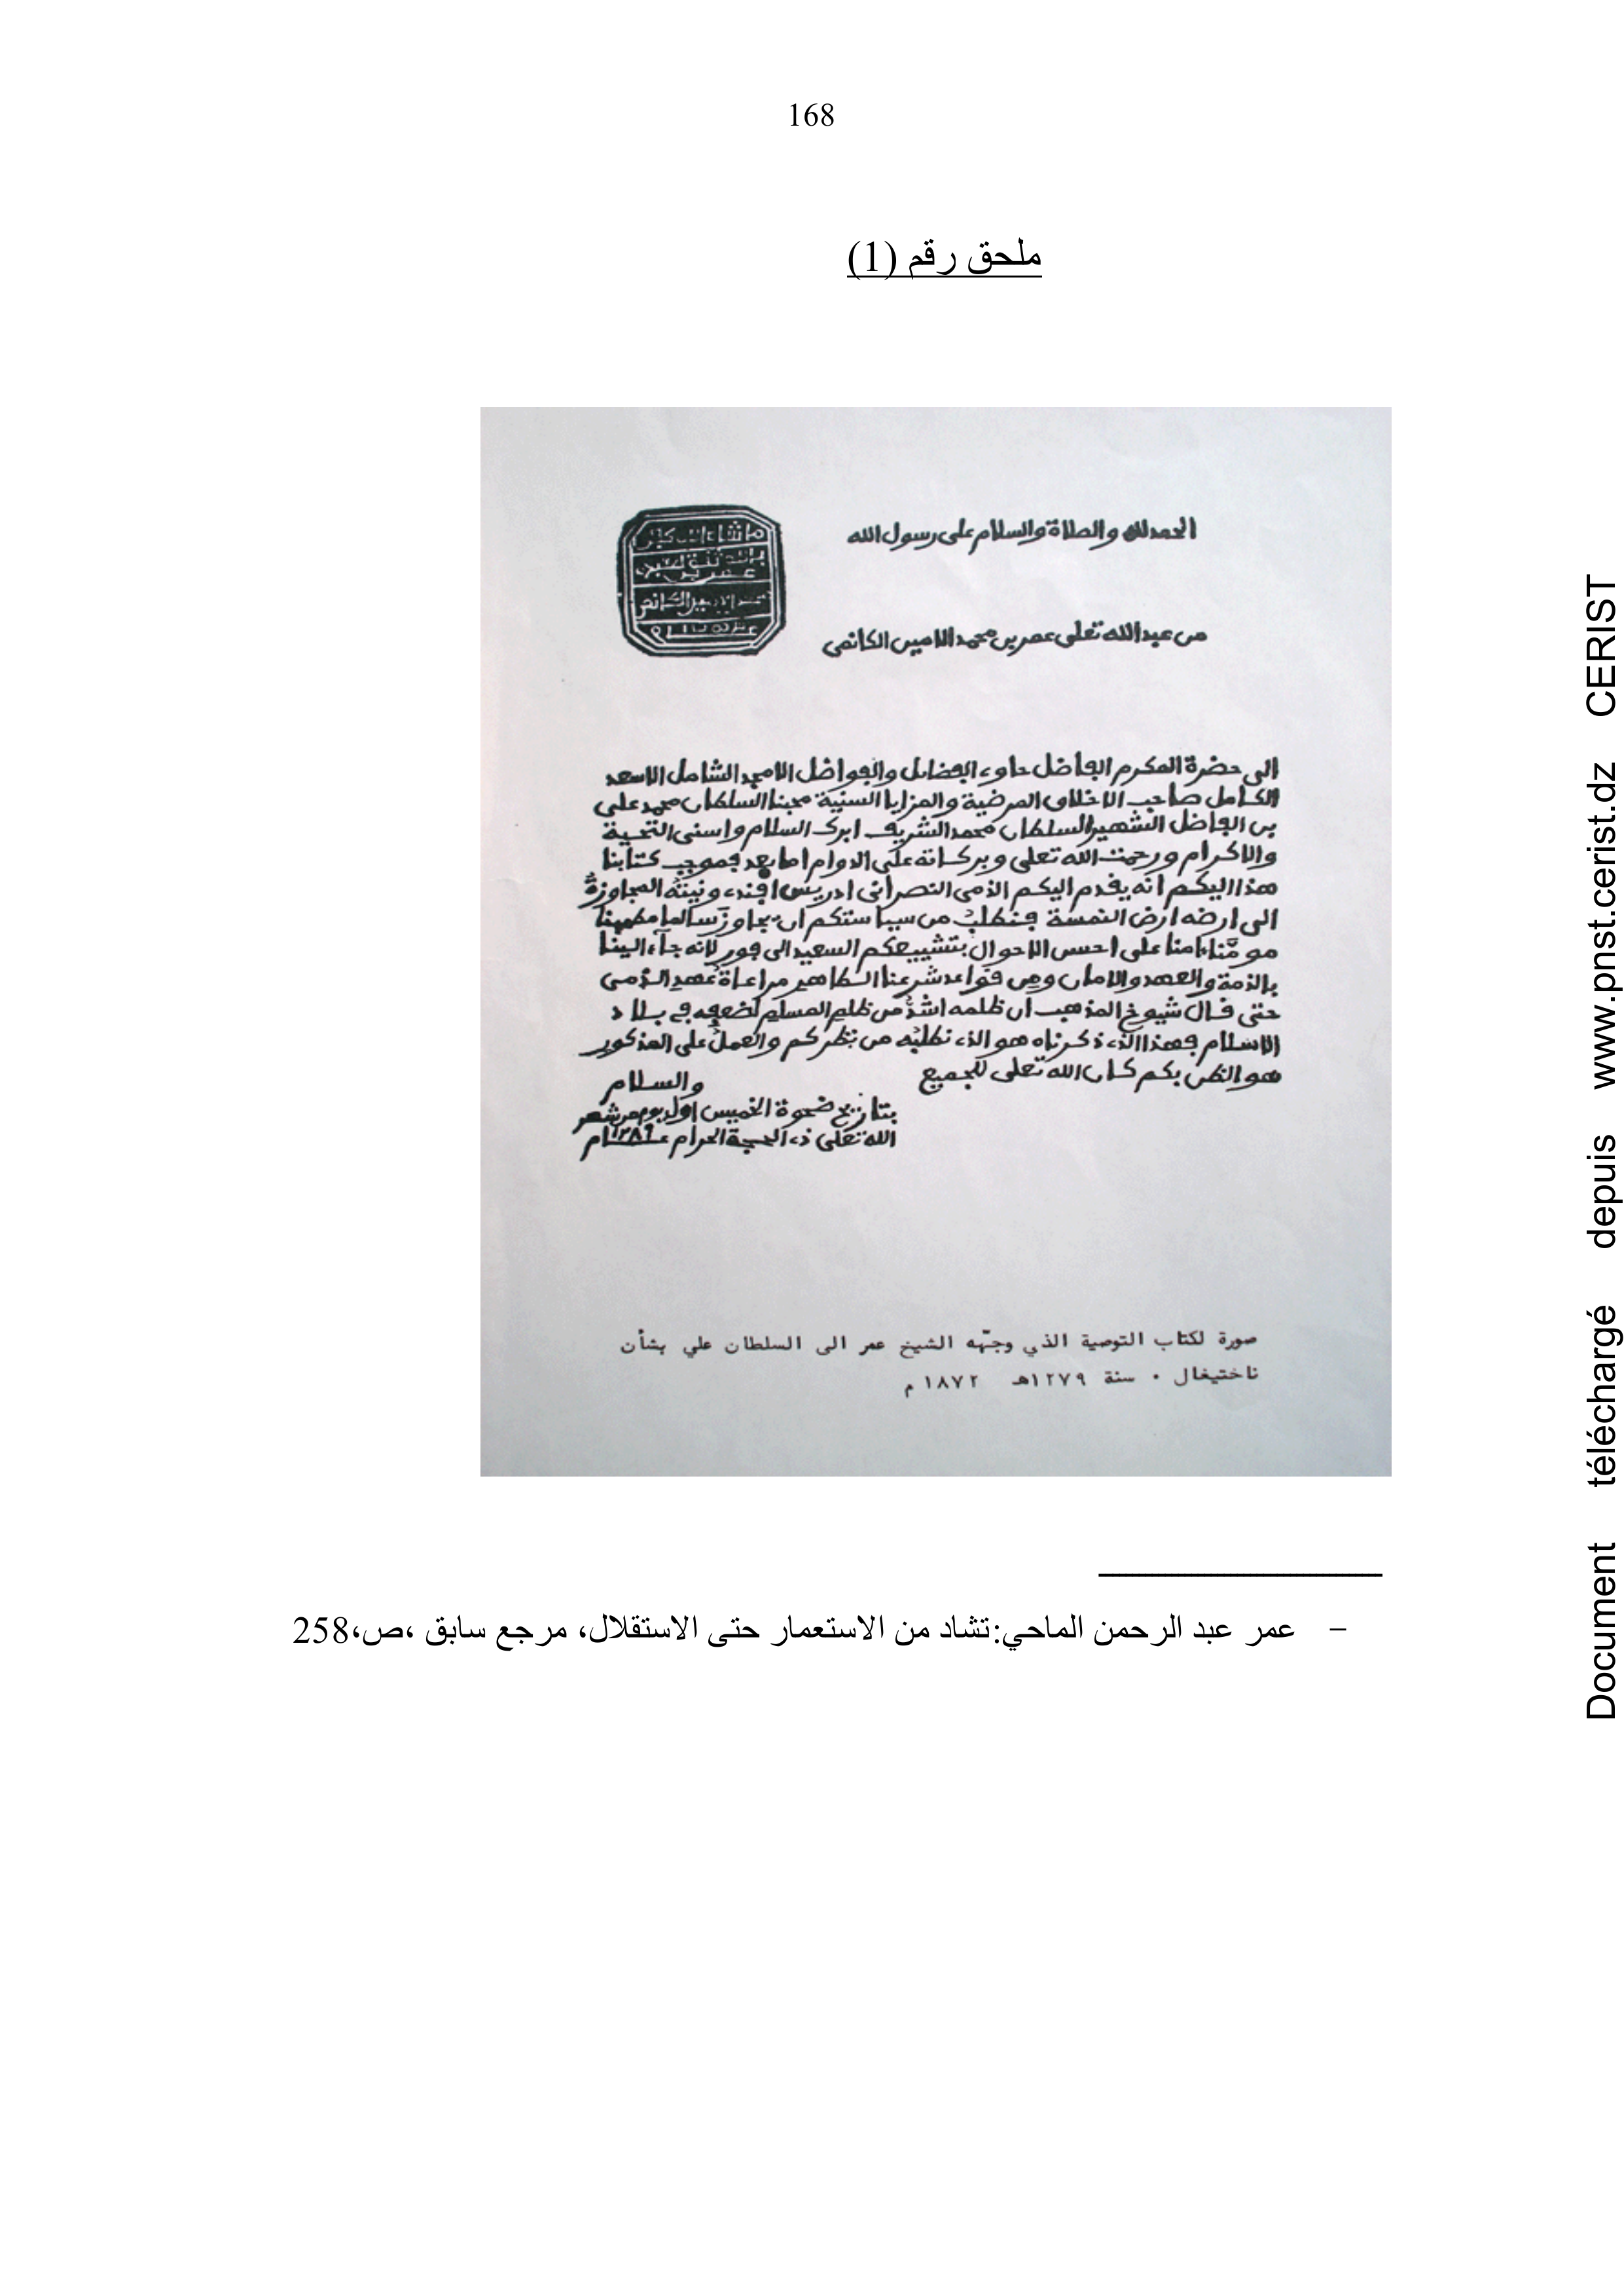 168
ملحق رقم (1)
الحمد لله والصلاة والسلام على رسول الله
من عبد الله تعلى عمر بن محمد الامين الكانمى
الى حضرة المكرم الفاضل حاوى الفضايل والفواضل الامجد الشامل الاسعد
الكامل صاحب الاخلاق المرضية والمزايا السنية محبنا السلطان محمد على
بن الفاضل الشهير السلطان محمد الشريف ابرك السلام واسنى التحية
والاكرام ورحمت الله تعلى وبركاته على الدوام اما بعد فموجب كتابنا
هذا اليكم انه يقدم اليكم الذمى النصرانى ادريس افندى ونيته المجاوزة
الى ارضه ارض النمسة فنطلب من سياستكم ان يجاوز سالما مطمينا
مومّنا ءامنا على احسن الاحوال بتشييعكم السعيد الى فور لانه جآء الينا
بالذمة والعهد والامان ومن قواعد شرعنا الطاهر مراعاة عهد الذمى
حتى قال شيوخ المذهب ان ظلمه اشد من ظلم المسلم لضعفه في بلاد
الاسلام فهذا الذى ذكرناه هو الذى نطلبه من نظركم والعمل على المذكور
هو الظن بكم كان الله تعلى للجميع
والسلام
بتاريخ ضحوة الخميس اول يوم من شهر
الله تعلى ذى الحجة الحرام عـــام ١٢٨٩
صورة لكتاب التوصية الذي وجّهه الشيخ عمر الى السلطان علي بشأن
ناختيغال . سنة ١٢٧٩هـ ١٨٧٢ م
– عمر عبد الرحمن الماحي:تشاد من الاستعمار حتى الاستقلال، مرجع سابق ،ص،258
Document téléchargé depuis www.pnst.cerist.dz CERIST